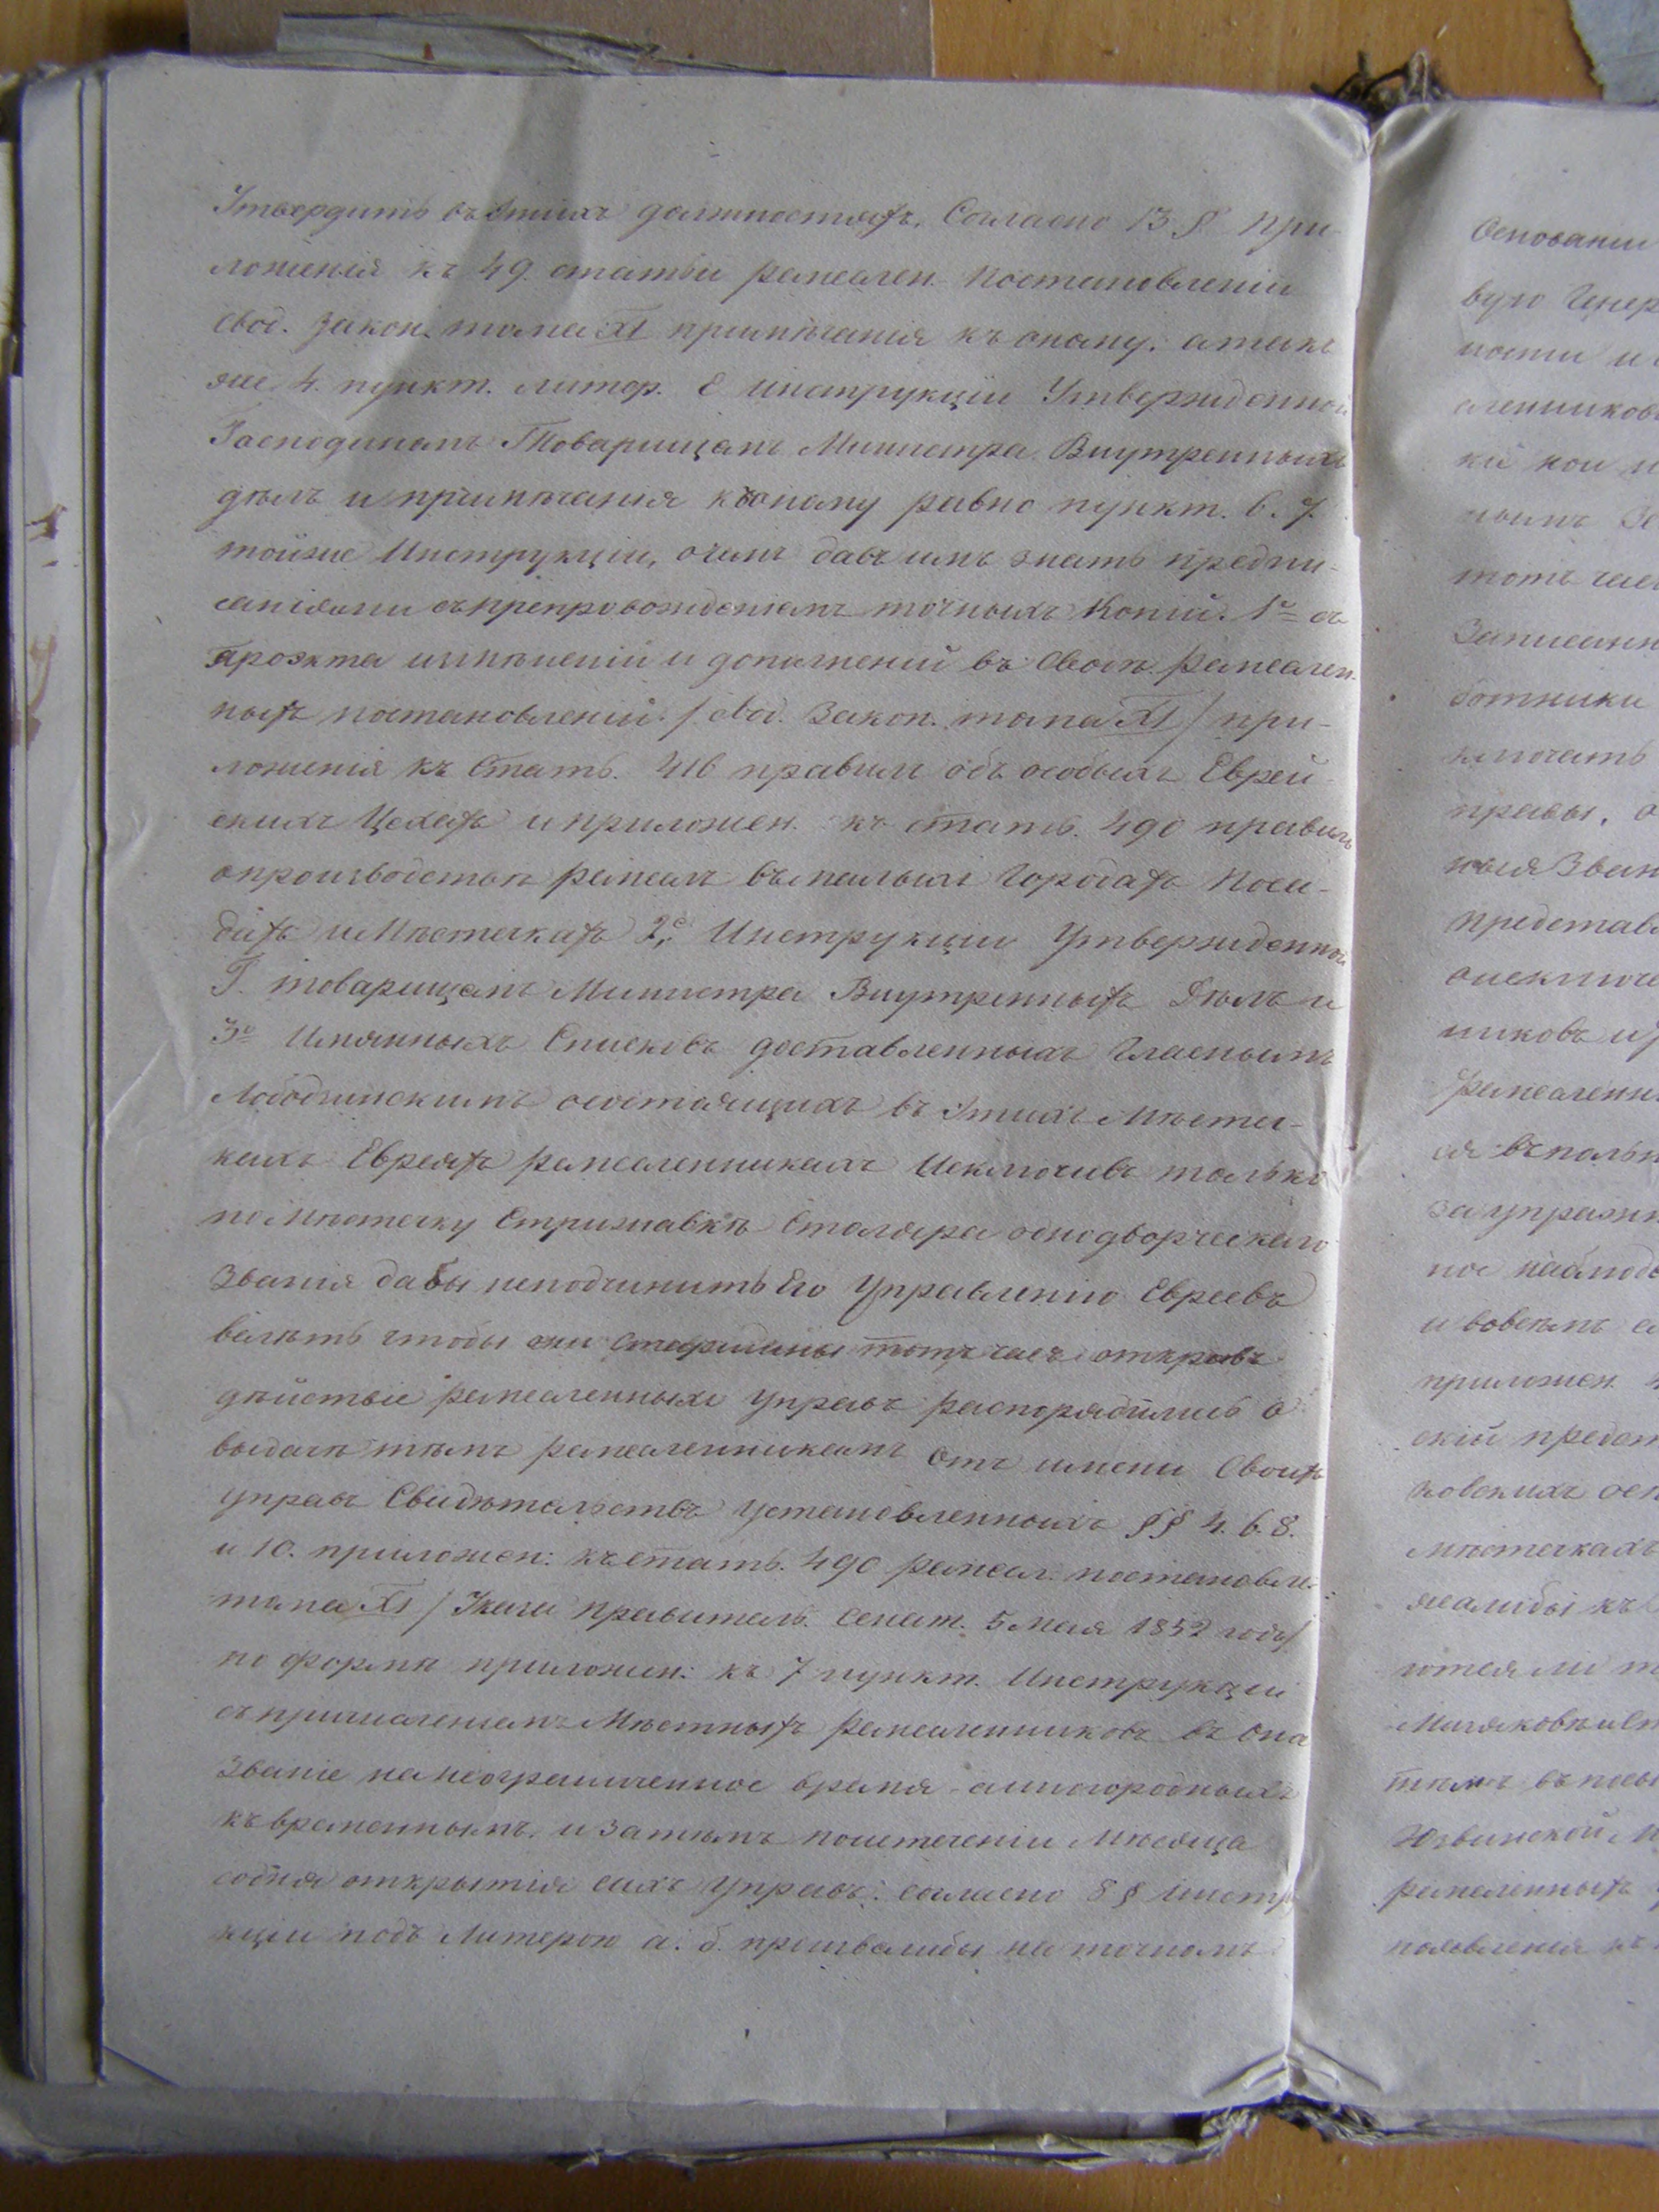 Утвердить въ этихъ должностяхъ. Согласно 13 § при-
ложенія къ 49. статьи ремеслен. постановленій
свод. Закон. тома XI примѣчанія къ оному. а также
же 4. пункт. литер. Е инструкціи Утвержденной
Господиномъ Товарищемъ Министра Внутреннихъ
дѣлъ и примѣчанія къ оному равно пункт. 6. 7.
тойже Инструкціи, о чемъ давъ имъ знать предпи-
саніями съ препровожденіемъ точныхъ Копій. 1е съ
проэкта измѣненій и дополненій въ Сводѣ ремеслен-
ныхъ постановленій. / свод. Закон. тома XI / при-
ложенія къ Стать. 416 правилъ объ особыхъ Еврей-
скихъ Цехахъ и приложен. къ стать. 490 правилъ
о производствѣ ремеслъ въ малыхъ Городахъ Поса-
дахъ и Мѣстечкахъ 2е Инструкціи Утвержденной
Г. товарищемъ Министра Внутреннихъ Дѣлъ и
3е Имянныхъ Списковъ доставленныхъ Гласнымъ
Лободзинскимъ о состоящихъ въ этихъ Мѣстеч-
кахъ Евреяхъ ремесленникахъ Исключивъ только
по Мѣстечку Стрижавкѣ Столяра однодворческаго
Званія дабы неподчинить Его Управленію Евреевъ
велѣть чтобы они Старшины тотъ часъ открывъ
дѣйствіе ремесленныхъ управъ распорядились о
выдачи тѣмъ ремесленникамъ отъ имени Своихъ
управъ Свидѣтельствъ установленныхъ §§ 4. 6. 8.
и 10. приложен: къ стать. 490 ремесл. постановле.
тома XI / Указа правитель. Сенат. 5 мая 1852 года /
по формѣ приложен: къ 7 пункт. Инструкціи
съ причисленіемъ Мѣстныхъ ремесленниковъ въ она
Званіе на неограниченное время - а иногородныхъ
къ временнымъ. и затѣмъ поистеченіи Мѣсяца
содня открытія сихъ Управъ: согласно 8 § Инстру
кціи подъ Литерою а. б. на точномъ

Основаніи
вую Генер
ности и
сленников

нымъ
тотъ час
Записанн
ботники
ключать
правы. о
ныя Зван
представ
о исключе
никовъ и
ремесленн.
ся въ польз
за упражн
ное наблюде
и вовсемъ
приложен.
скій предст
ковскихъ
Мѣстечкахъ
къ

въ
Юзвинской М
ремесленныхъ